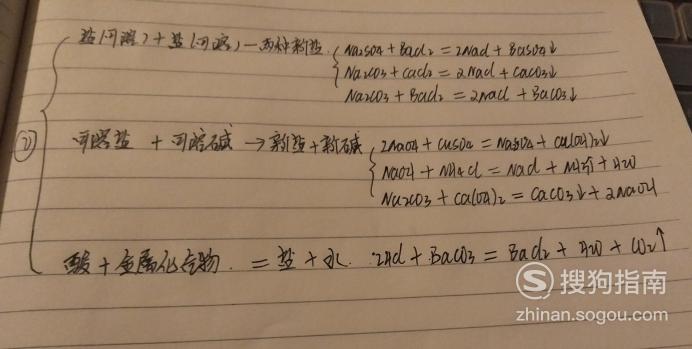 盐(可溶)+盐(可溶)—两种新盐 Na2SO4+BaCl2=2NaCl+BaSO4↓
Na2CO3+CaCl2=2NaCl+CaCO3↓
Na2CO3+BaCl2=2NaCl+BaCO3↓
② 可溶盐+可溶碱→新盐+新碱 2NaOH+CuSO4=Na2SO4+Cu(OH)2↓
NaOH+NH4Cl=NaCl+NH3↑+H2O
Na2CO3+Ca(OH)2=CaCO3↓+2NaOH
酸+金属化合物.=盐+水. 2HCl+BaCO3=BaCl2+H2O+CO2↑
S 搜狗指南
zhinan.sogou.com